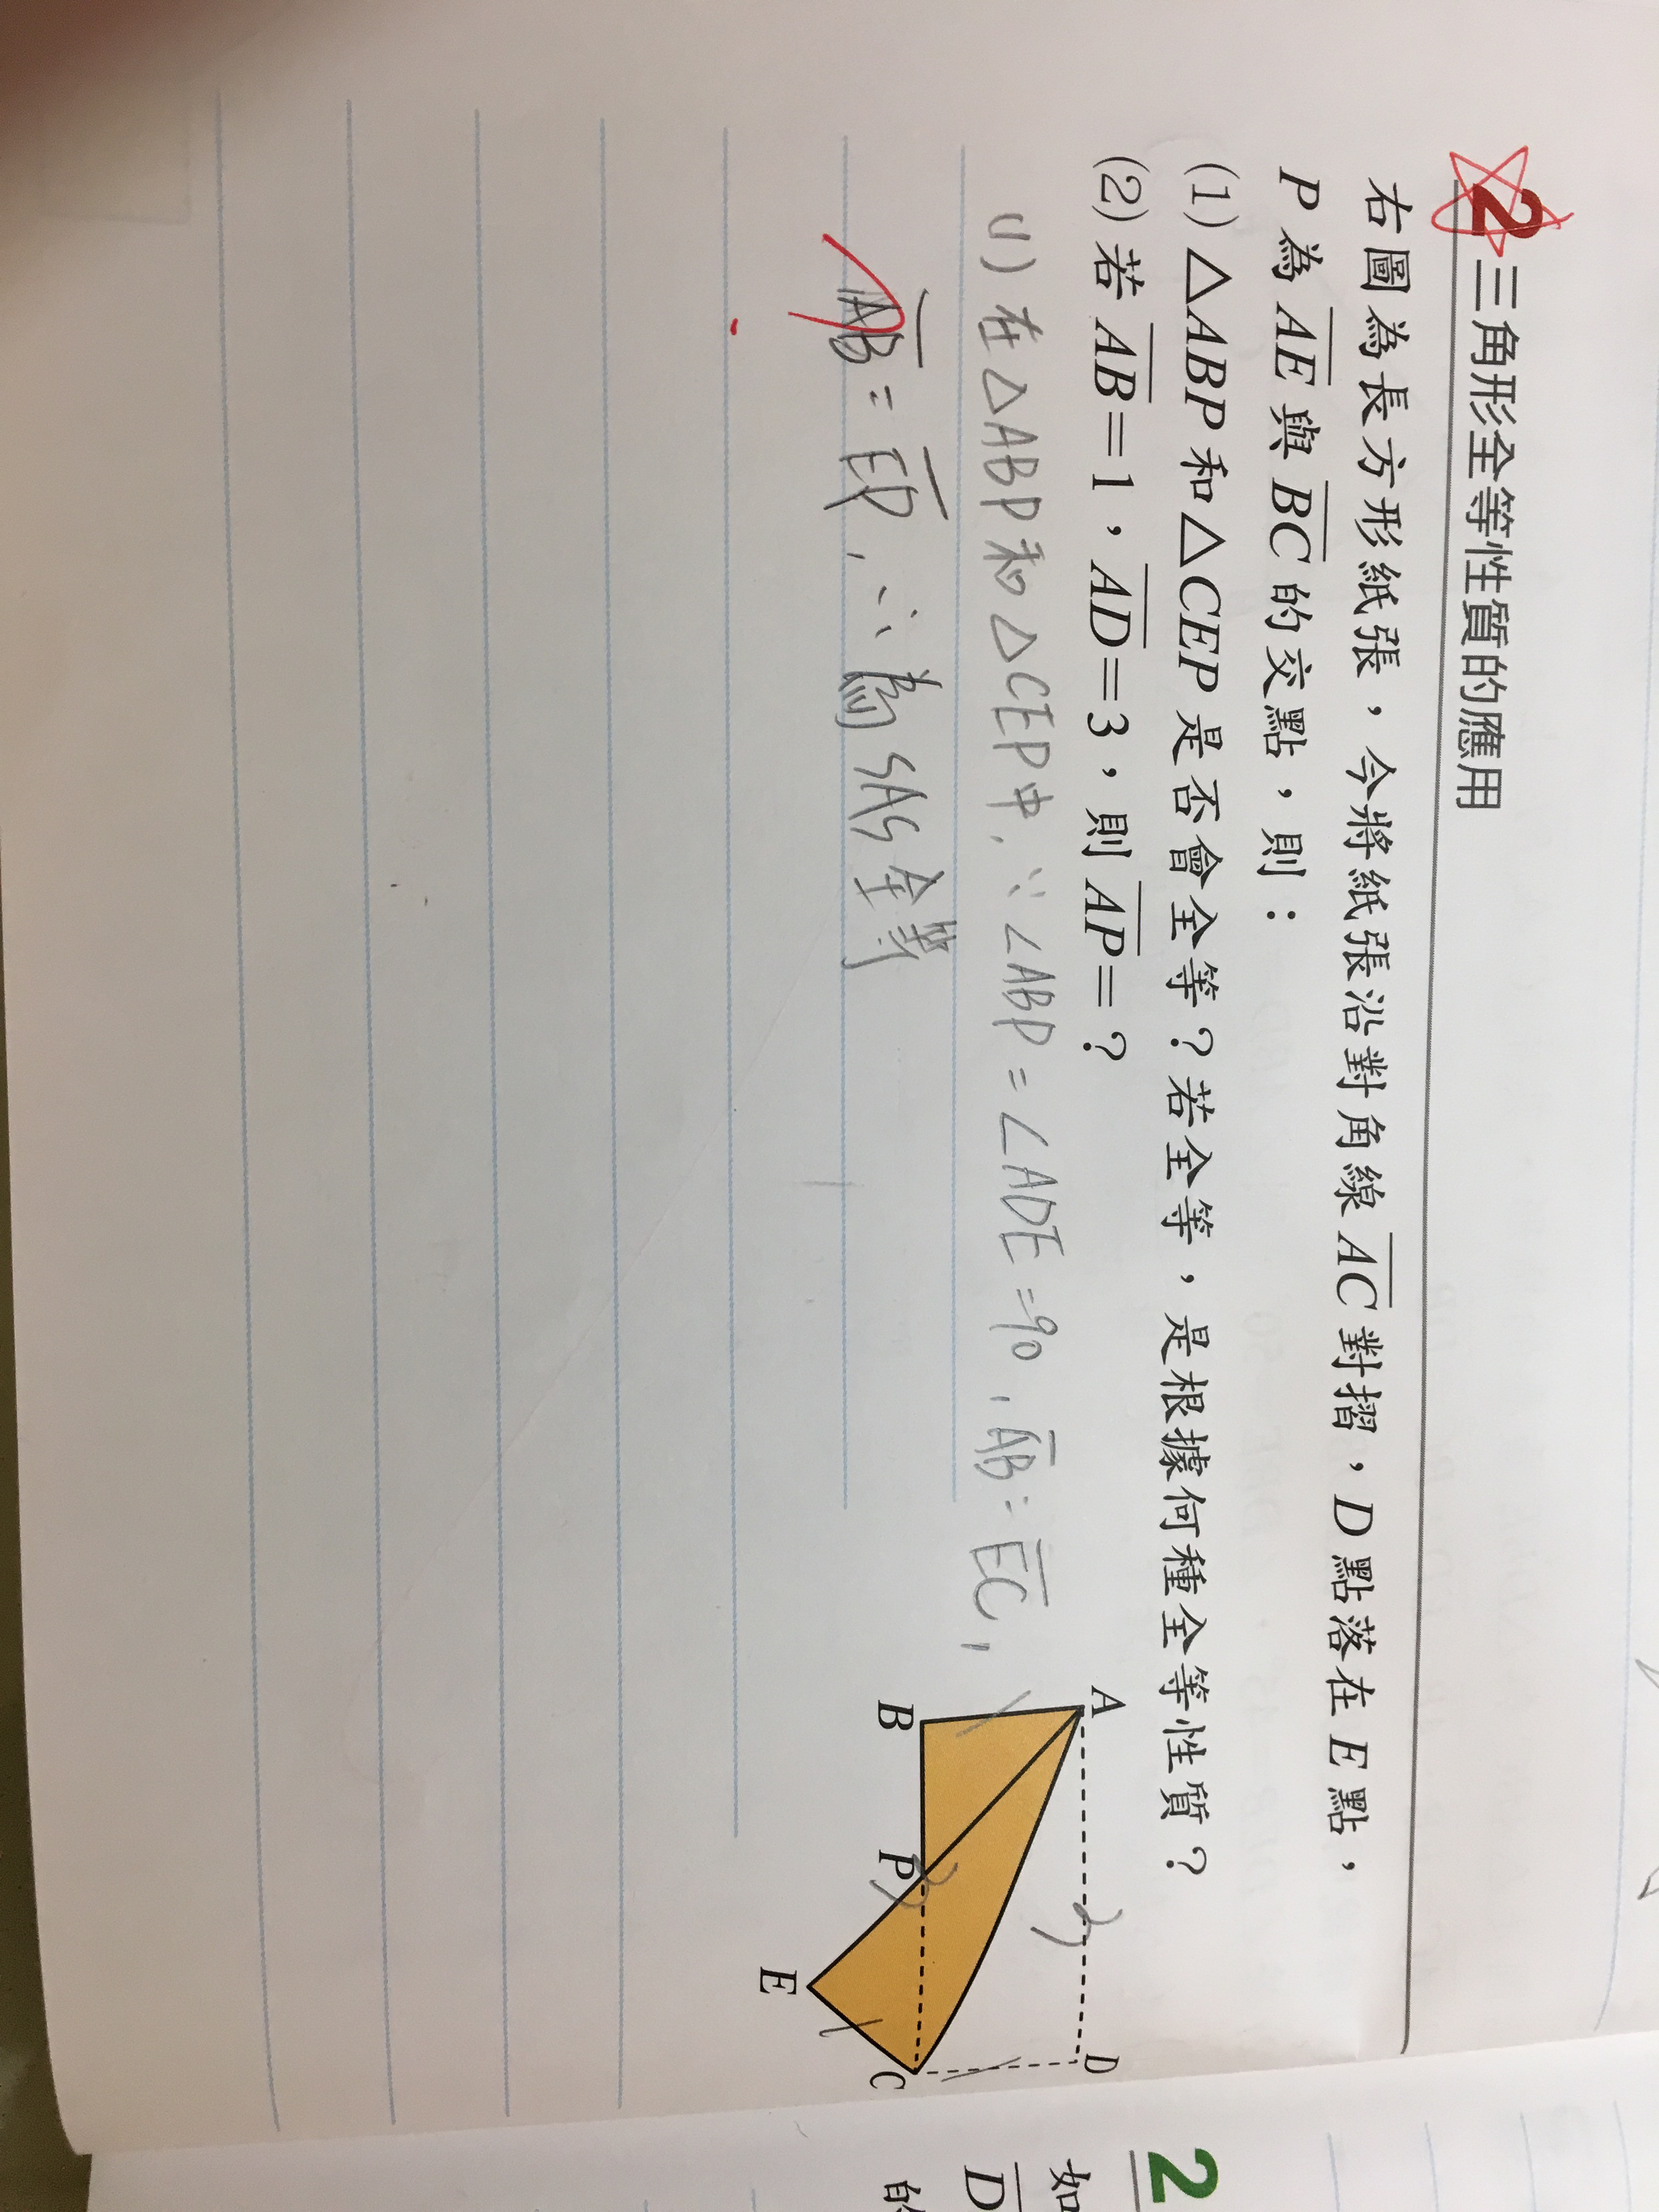 2 三角形全等性質的應用
右圖為長方形紙張，今將紙張沿對角線AC對摺，D點落在E點，
P為AE與BC的交點，則：
(1) △ABP和△CEP是否會全等？若全等，是根據何種全等性質？
(2) 若AB=1，AD=3，則AP=？
(1) 在△ABP和△CEP中, ∵∠ABP=∠ADE=90, AB=EC,
AB=ED, ∴為SAS全等
A
D
B
P
C
E
2
如
D
的